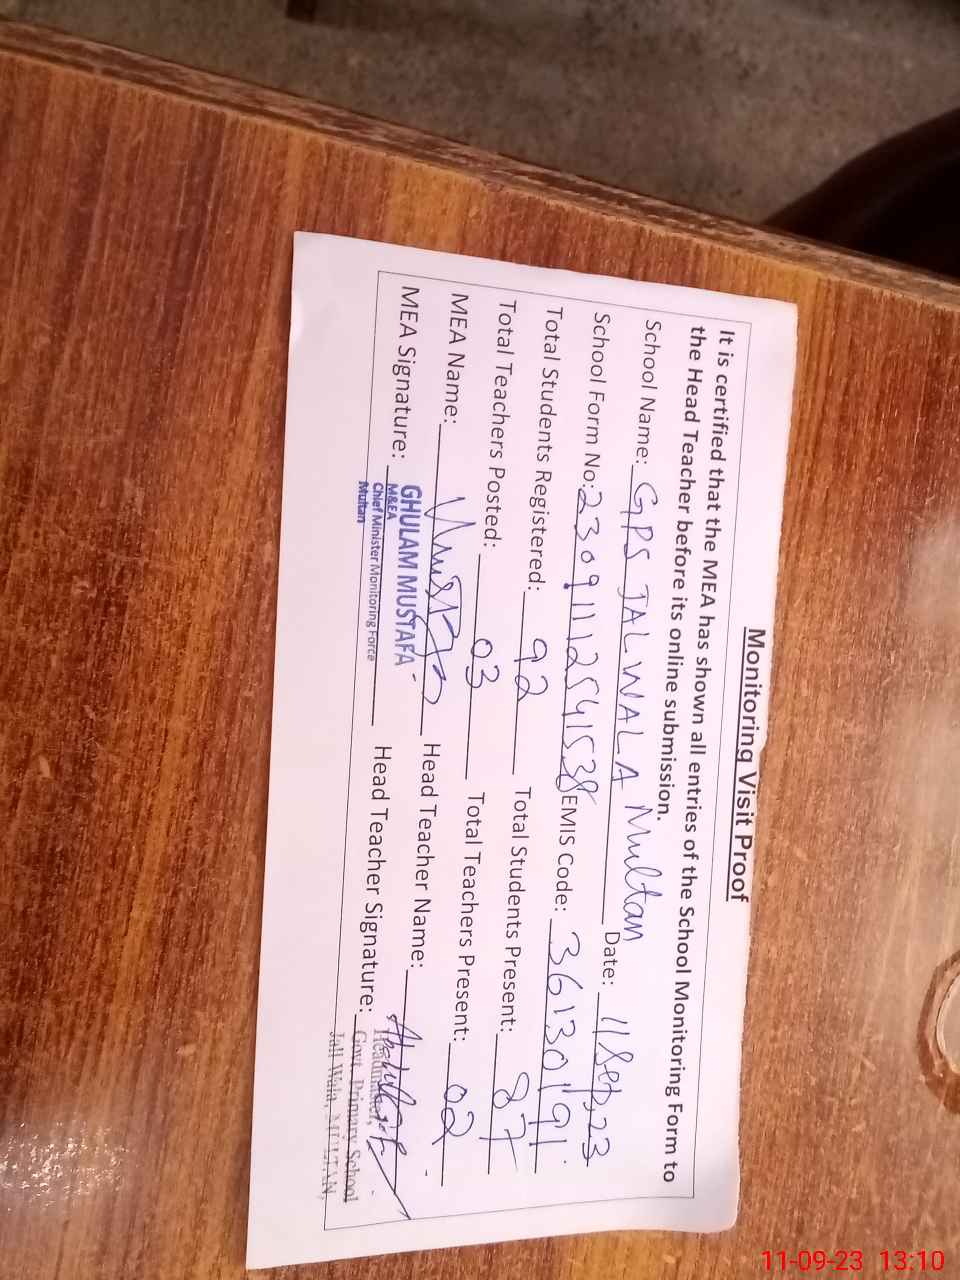 Monitoring Visit Proof
It is certified that the MEA has shown all entries of the School Monitoring Form to
the Head Teacher before its online submission.
School Name: GPS JALWALA Multan Date: 11 Sep, 23
School Form No: 23091112541538 EMIS Code: 36130191
Total Students Registered: 92 Total Students Present: 87
Total Teachers Posted: 03 Total Teachers Present: 02
MEA Name: Head Teacher Name:
MEA Signature: Head Teacher Signature:
GHULAM MUSTAFA
M&EA
Chief Minister Monitoring Force
Multan
Headmaster,
Govt. Primary School
Jall Wala, MULTAN,
11-09-23 13:10